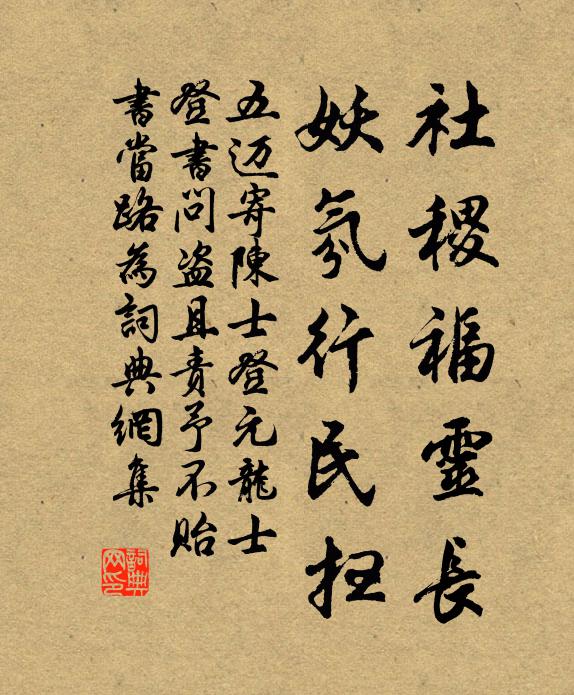 社稷福靈長
妖氛行民
五迈寄陳士登元龍士
登書問盗且責予不貽
書當路為詞典網集
詞典
网印